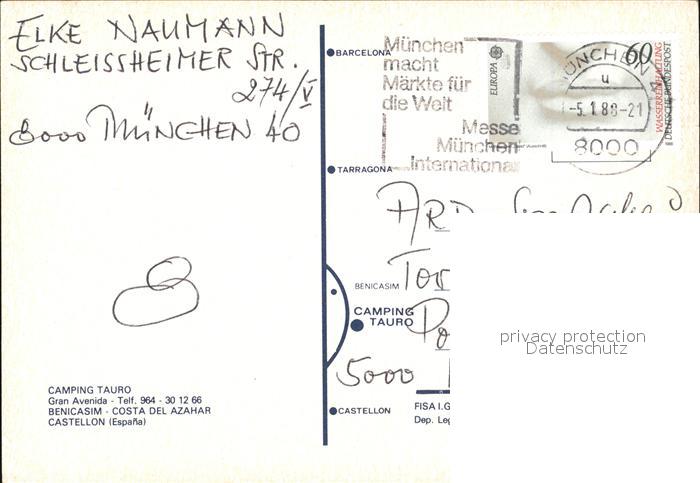 ELKE NAUMANN
SCHLEISSHEIMER STR.
274/V
8000 MÜNCHEN 40
CAMPING TAURO
Gran Avenida - Telf. 964 - 30 12 66
BENICASIM - COSTA DEL AZAHAR
CASTELLON (España)
BARCELONA
TARRAGONA
BENICASIM
CAMPING
TAURO
CASTELLON
München
macht
Märkte für
die Welt
Messe
München
International
EUROPA
60
WASSERREINHALTUNG
DEUTSCHE BUNDESPOST
MÜNCHEN
u
-5.1.88-21
8000
ARD
5000
FISA I.G
Dep. Leg
privacy protection
Datenschutz